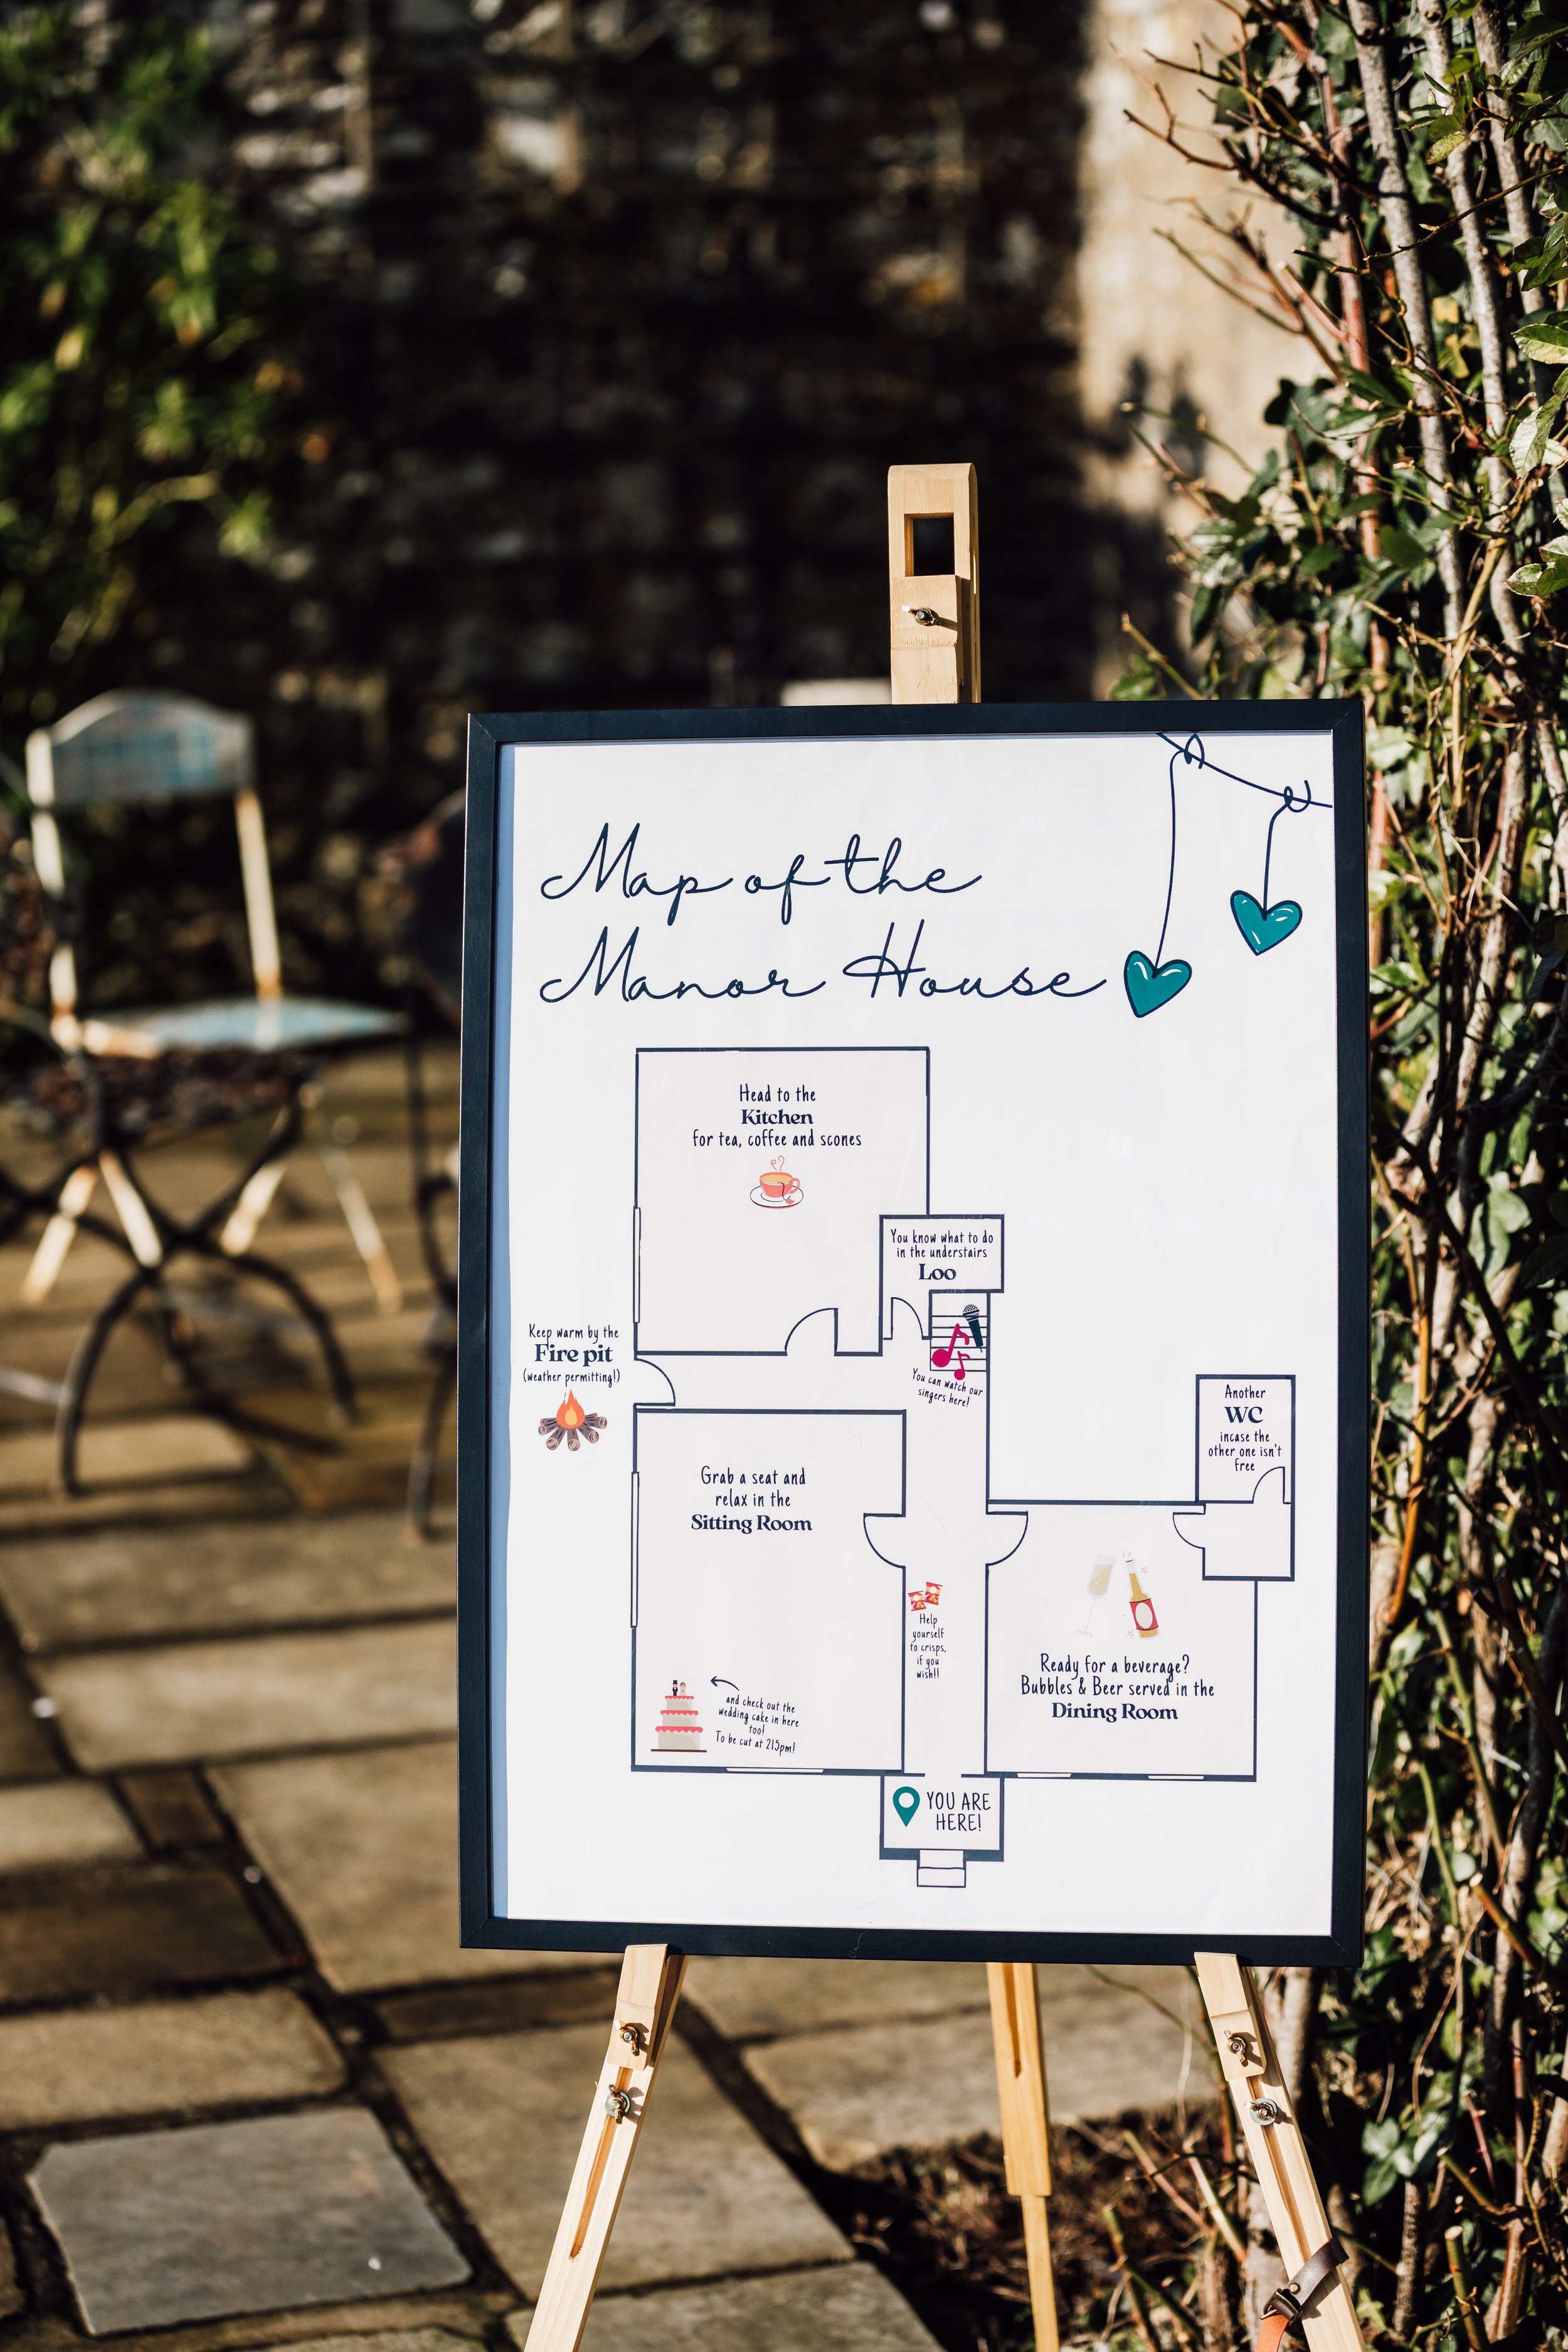 Map of the
Manor House
Head to the
Kitchen
for tea, coffee and scones
You know what to do
in the understairs
Loo
Keep warm by the
Fire pit
(weather permitting!)
You can watch our
singers here!
Another
WC
incase the
other one isn't
free
Grab a seat and
relax in the
Sitting Room
Help
yourself
to crisps,
if you
wish!!
Ready for a beverage?
Bubbles & Beer served in the
Dining Room
and check out the
wedding cake in here
too!
To be cut at 215pm!
YOU ARE
HERE!